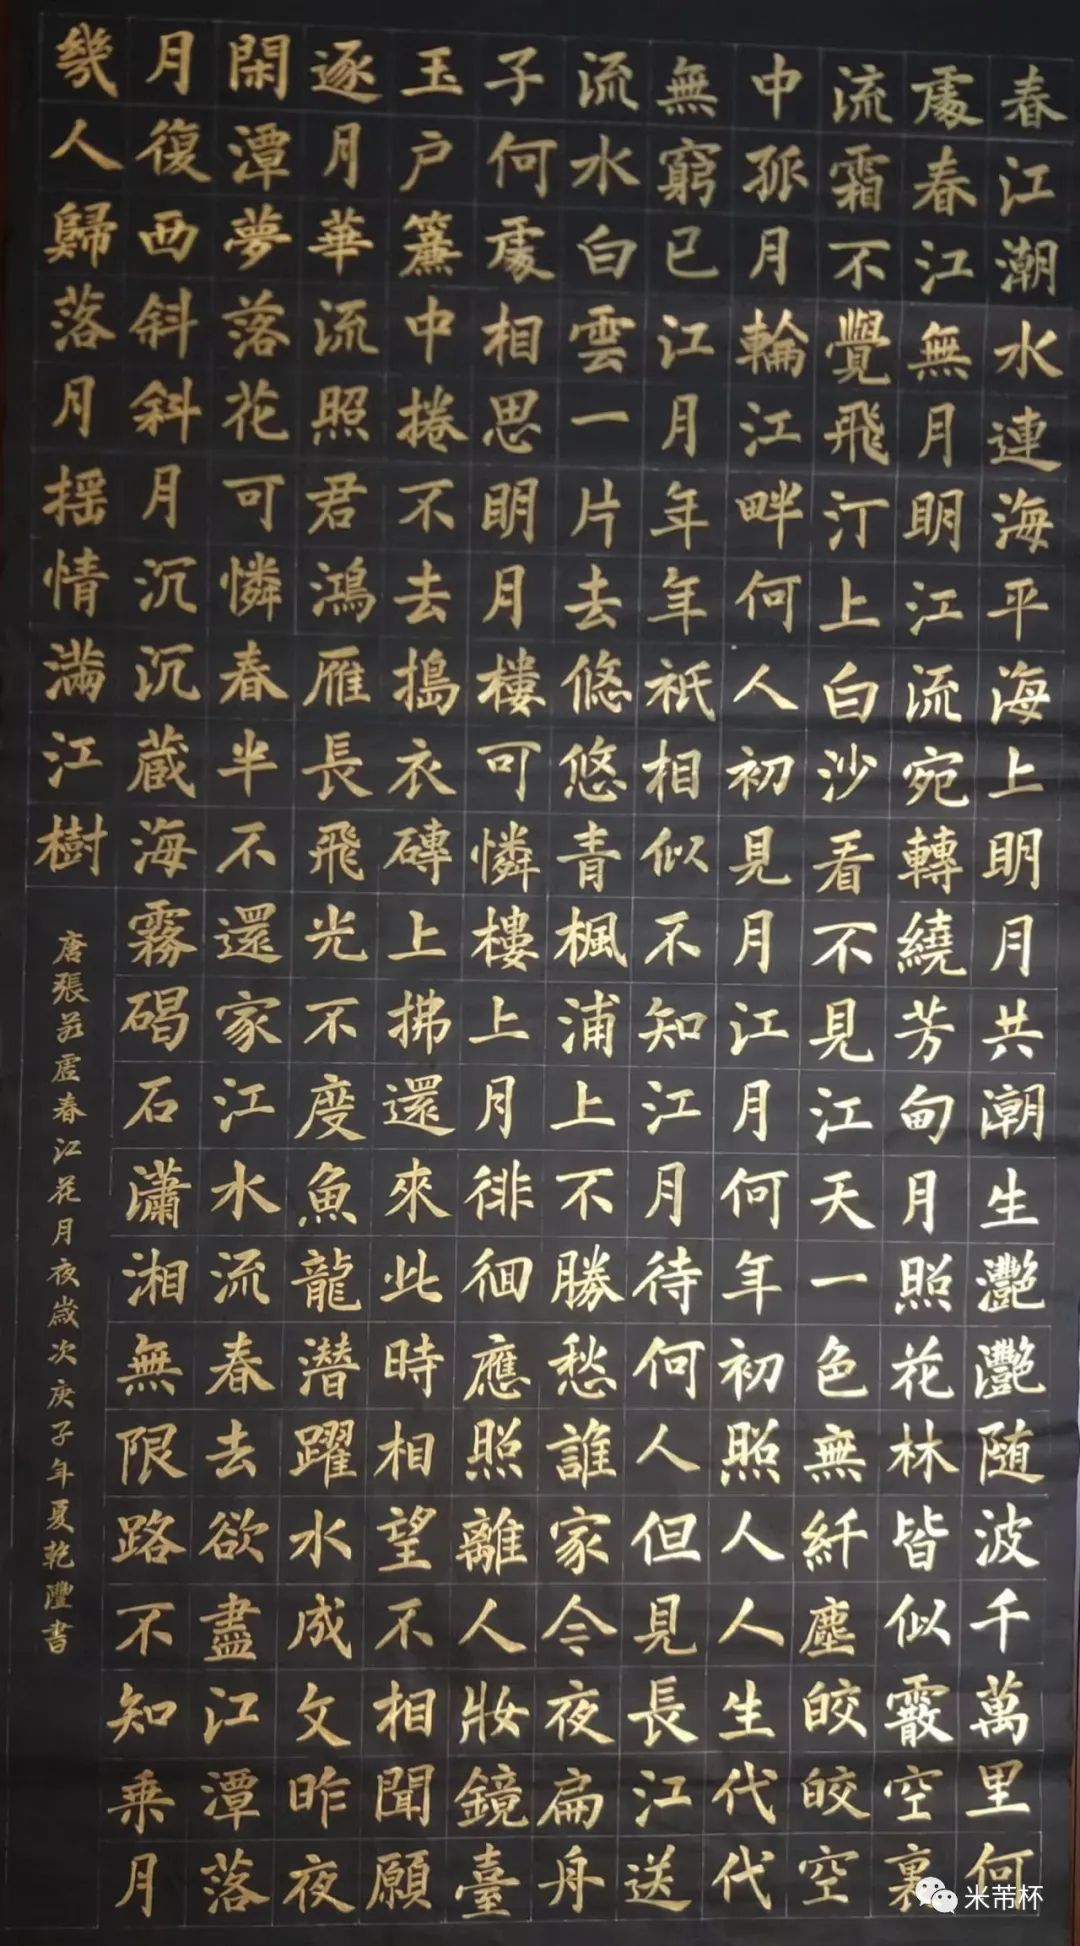 春江潮水連海平海上明月共潮生灩灩随波千萬里何
處春江無月明江流宛轉繞芳甸月照花林皆似霰空裏
流霜不覺飛汀上白沙看不見江天一色無纤塵皎皎空
中孤月輪江畔何人初見月江月何年初照人人生代代
無窮已江月年年祇相似不知江月待何人但見長江送
流水白雲一片去悠悠青楓浦上不勝愁誰家今夜扁舟
子何處相思明月樓可憐樓上月徘徊應照離人妝鏡臺
玉户簾中捲不去搗衣磚上拂還來此時相望不相聞願
逐月華流照君鴻雁長飛光不度魚龍潛躍水成文昨夜
閑潭夢落花可憐春半不還家江水流春去欲盡江潭落
月復西斜斜月沉沉藏海霧碣石瀟湘無限路不知乘月
幾人歸落月摇情滿江樹
唐張若虛春江花月夜歲次庚子年夏乾灃書
米芾杯